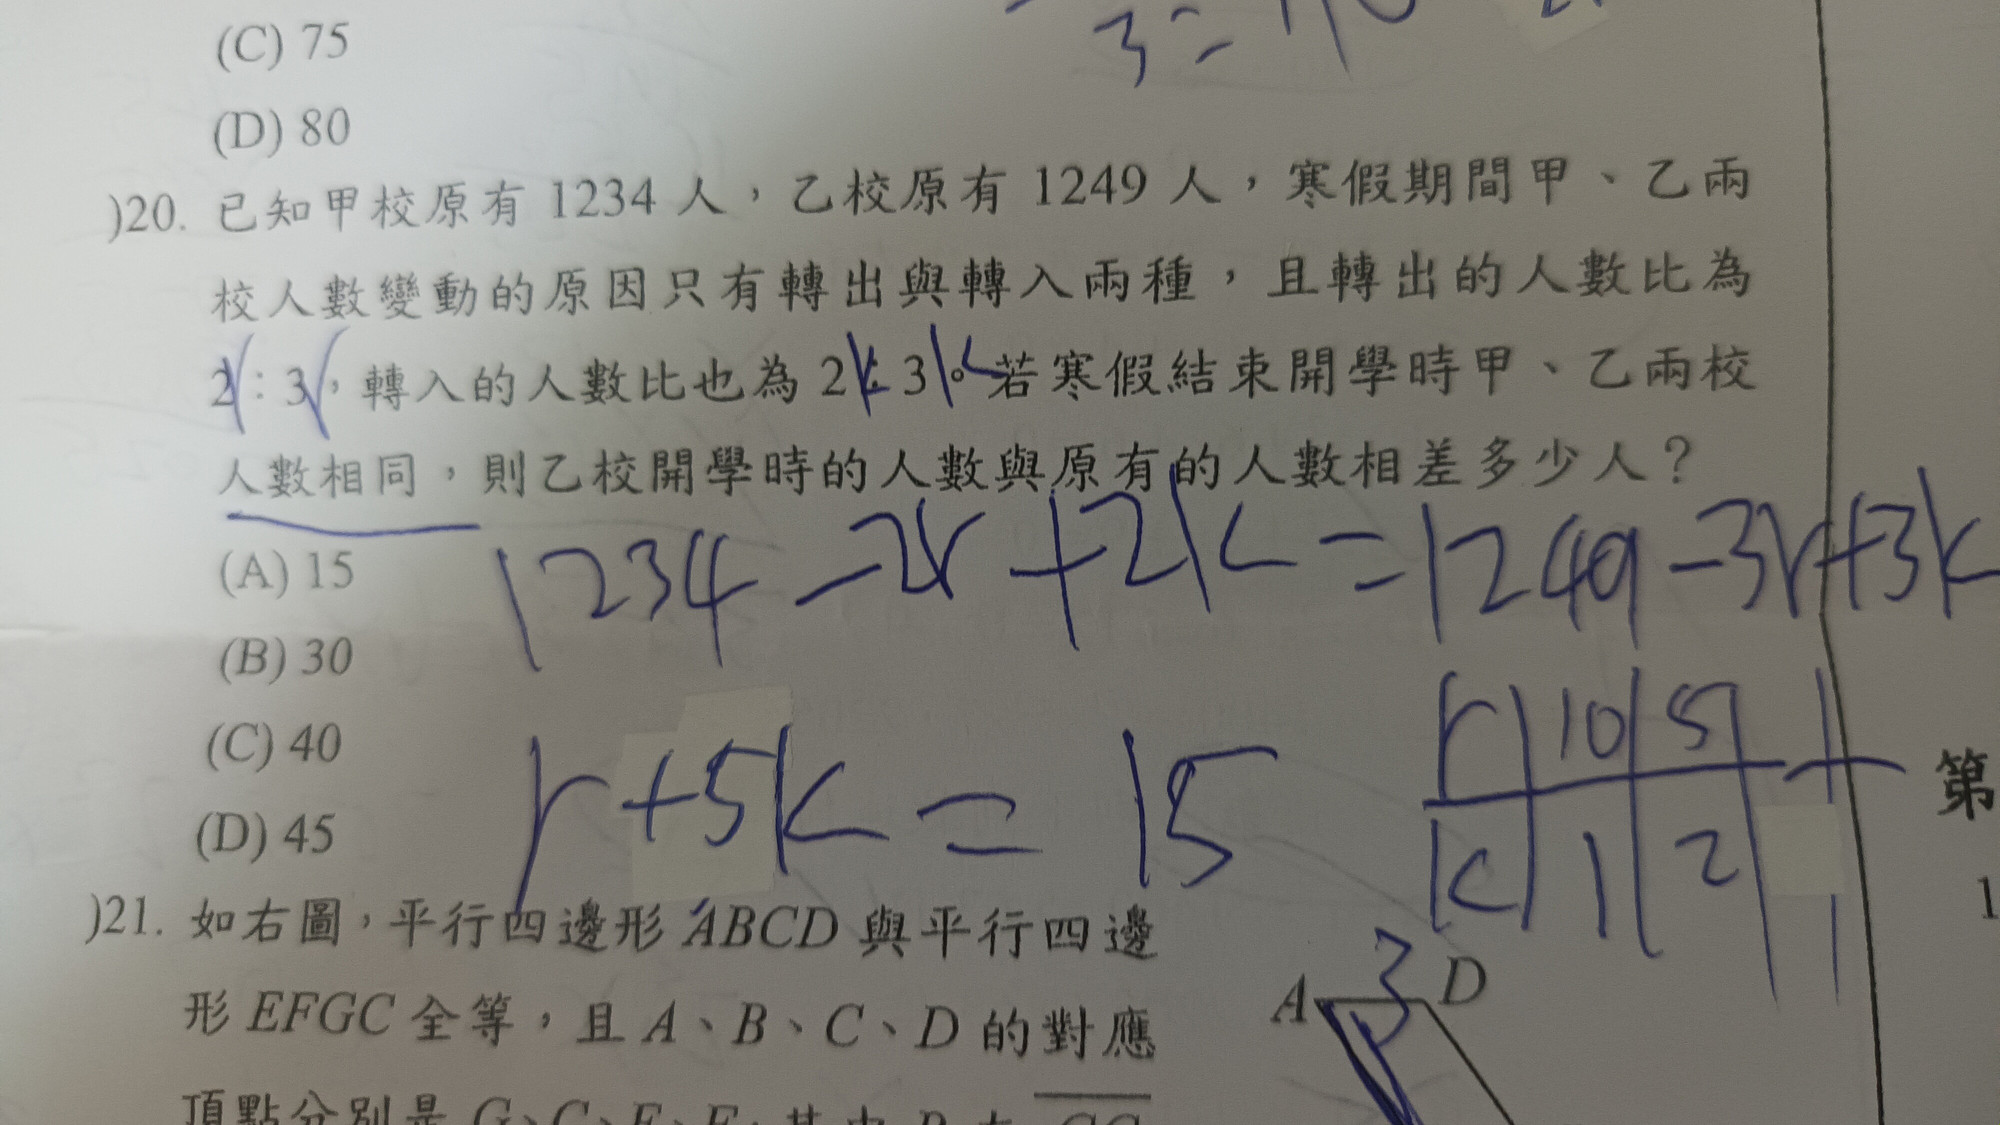 3=
(C) 75
(D) 80
)20. 已知甲校原有 1234 人，乙校原有 1249 人，寒假期間甲、乙兩
校人數變動的原因只有轉出與轉入兩種，且轉出的人數比為
2r：3r，轉入的人數比也為 2k：3k。若寒假結束開學時甲、乙兩校
人數相同，則乙校開學時的人數與原有的人數相差多少人？
1234-2r+2k=1249-3r+3k
(A) 15
(B) 30
(C) 40
(D) 45
r+5k=15
r 10 5
k 1 2
第
1
)21. 如右圖，平行四邊形 ABCD 與平行四邊
形 EFGC 全等，且 A、B、C、D 的對應
頂點分別是
A 3 D